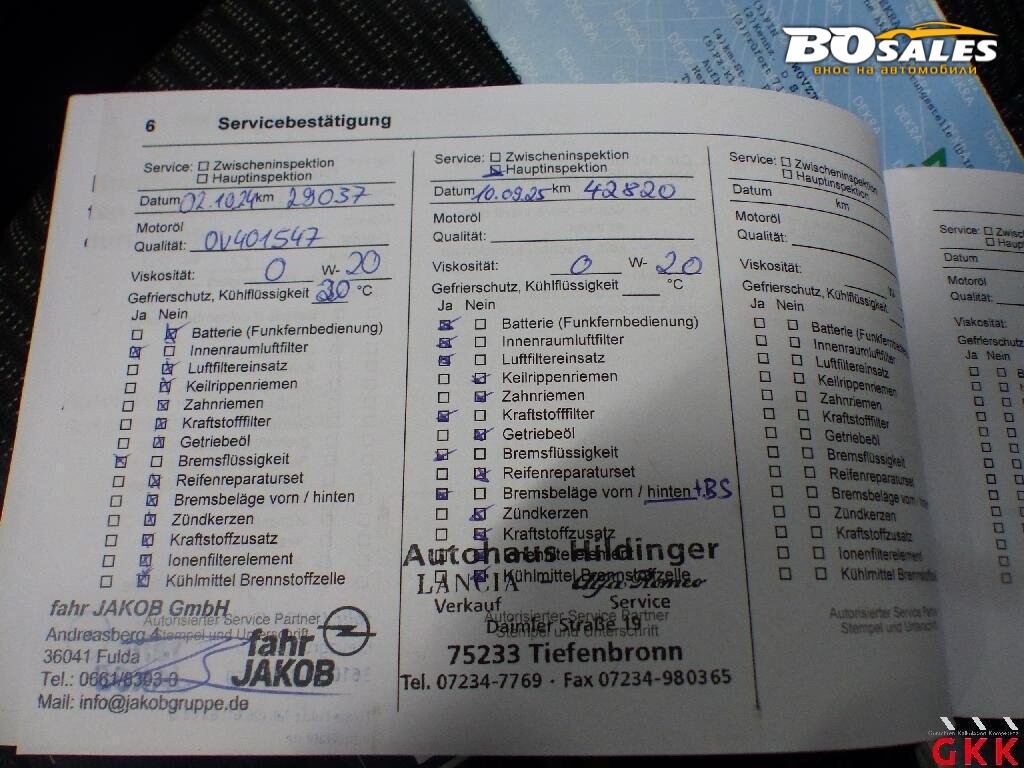 BOSALES
внос на автомобили
DEKRA
6 Servicebestätigung
Service: Zwischeninspektion
Hauptinspektion
Datum 02.10.24 km 29037
Motoröl
Qualität: OV401547
Viskosität: 0 W- 20
Gefrierschutz, Kühlflüssigkeit 30 °C
Ja Nein
Batterie (Funkfernbedienung)
Innenraumluftfilter
Luftfiltereinsatz
Keilrippenriemen
Zahnriemen
Kraftstofffilter
Getriebeöl
Bremsflüssigkeit
Reifenreparaturset
Bremsbeläge vorn / hinten
Zündkerzen
Kraftstoffzusatz
Ionenfilterelement
Kühlmittel Brennstoffzelle
Autorisierter Service Partner
Stempel und Unterschrift
fahr JAKOB GmbH
Andreasberg 4
36041 Fulda
Tel.: 0661/8393-0
Mail: info@jakobgruppe.de
fahr
JAKOB
Service: Zwischeninspektion
Hauptinspektion
Datum 10.09.25 km 42820
Motoröl
Qualität:
Viskosität: 0 W- 20
Gefrierschutz, Kühlflüssigkeit °C
Ja Nein
Batterie (Funkfernbedienung)
Innenraumluftfilter
Luftfiltereinsatz
Keilrippenriemen
Zahnriemen
Kraftstofffilter
Getriebeöl
Bremsflüssigkeit
Reifenreparaturset
Bremsbeläge vorn / hinten +BS
Zündkerzen
Kraftstoffzusatz
Ionenfilterelement
Kühlmittel Brennstoffzelle
Autorisierter Service Partner
Stempel und Unterschrift
Autohaus Hildinger
LANCIA Alfa Romeo
Verkauf Service
Daimler Straße 19
75233 Tiefenbronn
Tel. 07234-7769 · Fax 07234-980365
Service: Zwischeninspektion
Hauptinspektion
Datum km
Motoröl
Qualität:
Viskosität: W-
Gefrierschutz, Kühlflüssigkeit
Ja Nein
Batterie (Funkfernbe
Innenraumluftfilter
Luftfiltereinsatz
Keilrippenriemen
Zahnriemen
Kraftstofffilter
Getriebeöl
Bremsflüssigkeit
Reifenreparaturset
Bremsbeläge vorn
Zündkerzen
Kraftstoffzusatz
Ionenfilterelement
Kühlmittel Brennst
Autorisierter Service Partn
Stempel und Unterschrift
Service: Zwisch
Haupti
Datum
Motoröl
Qualität:
Viskosität:
Gefrierschutz
Ja Nein
GKK